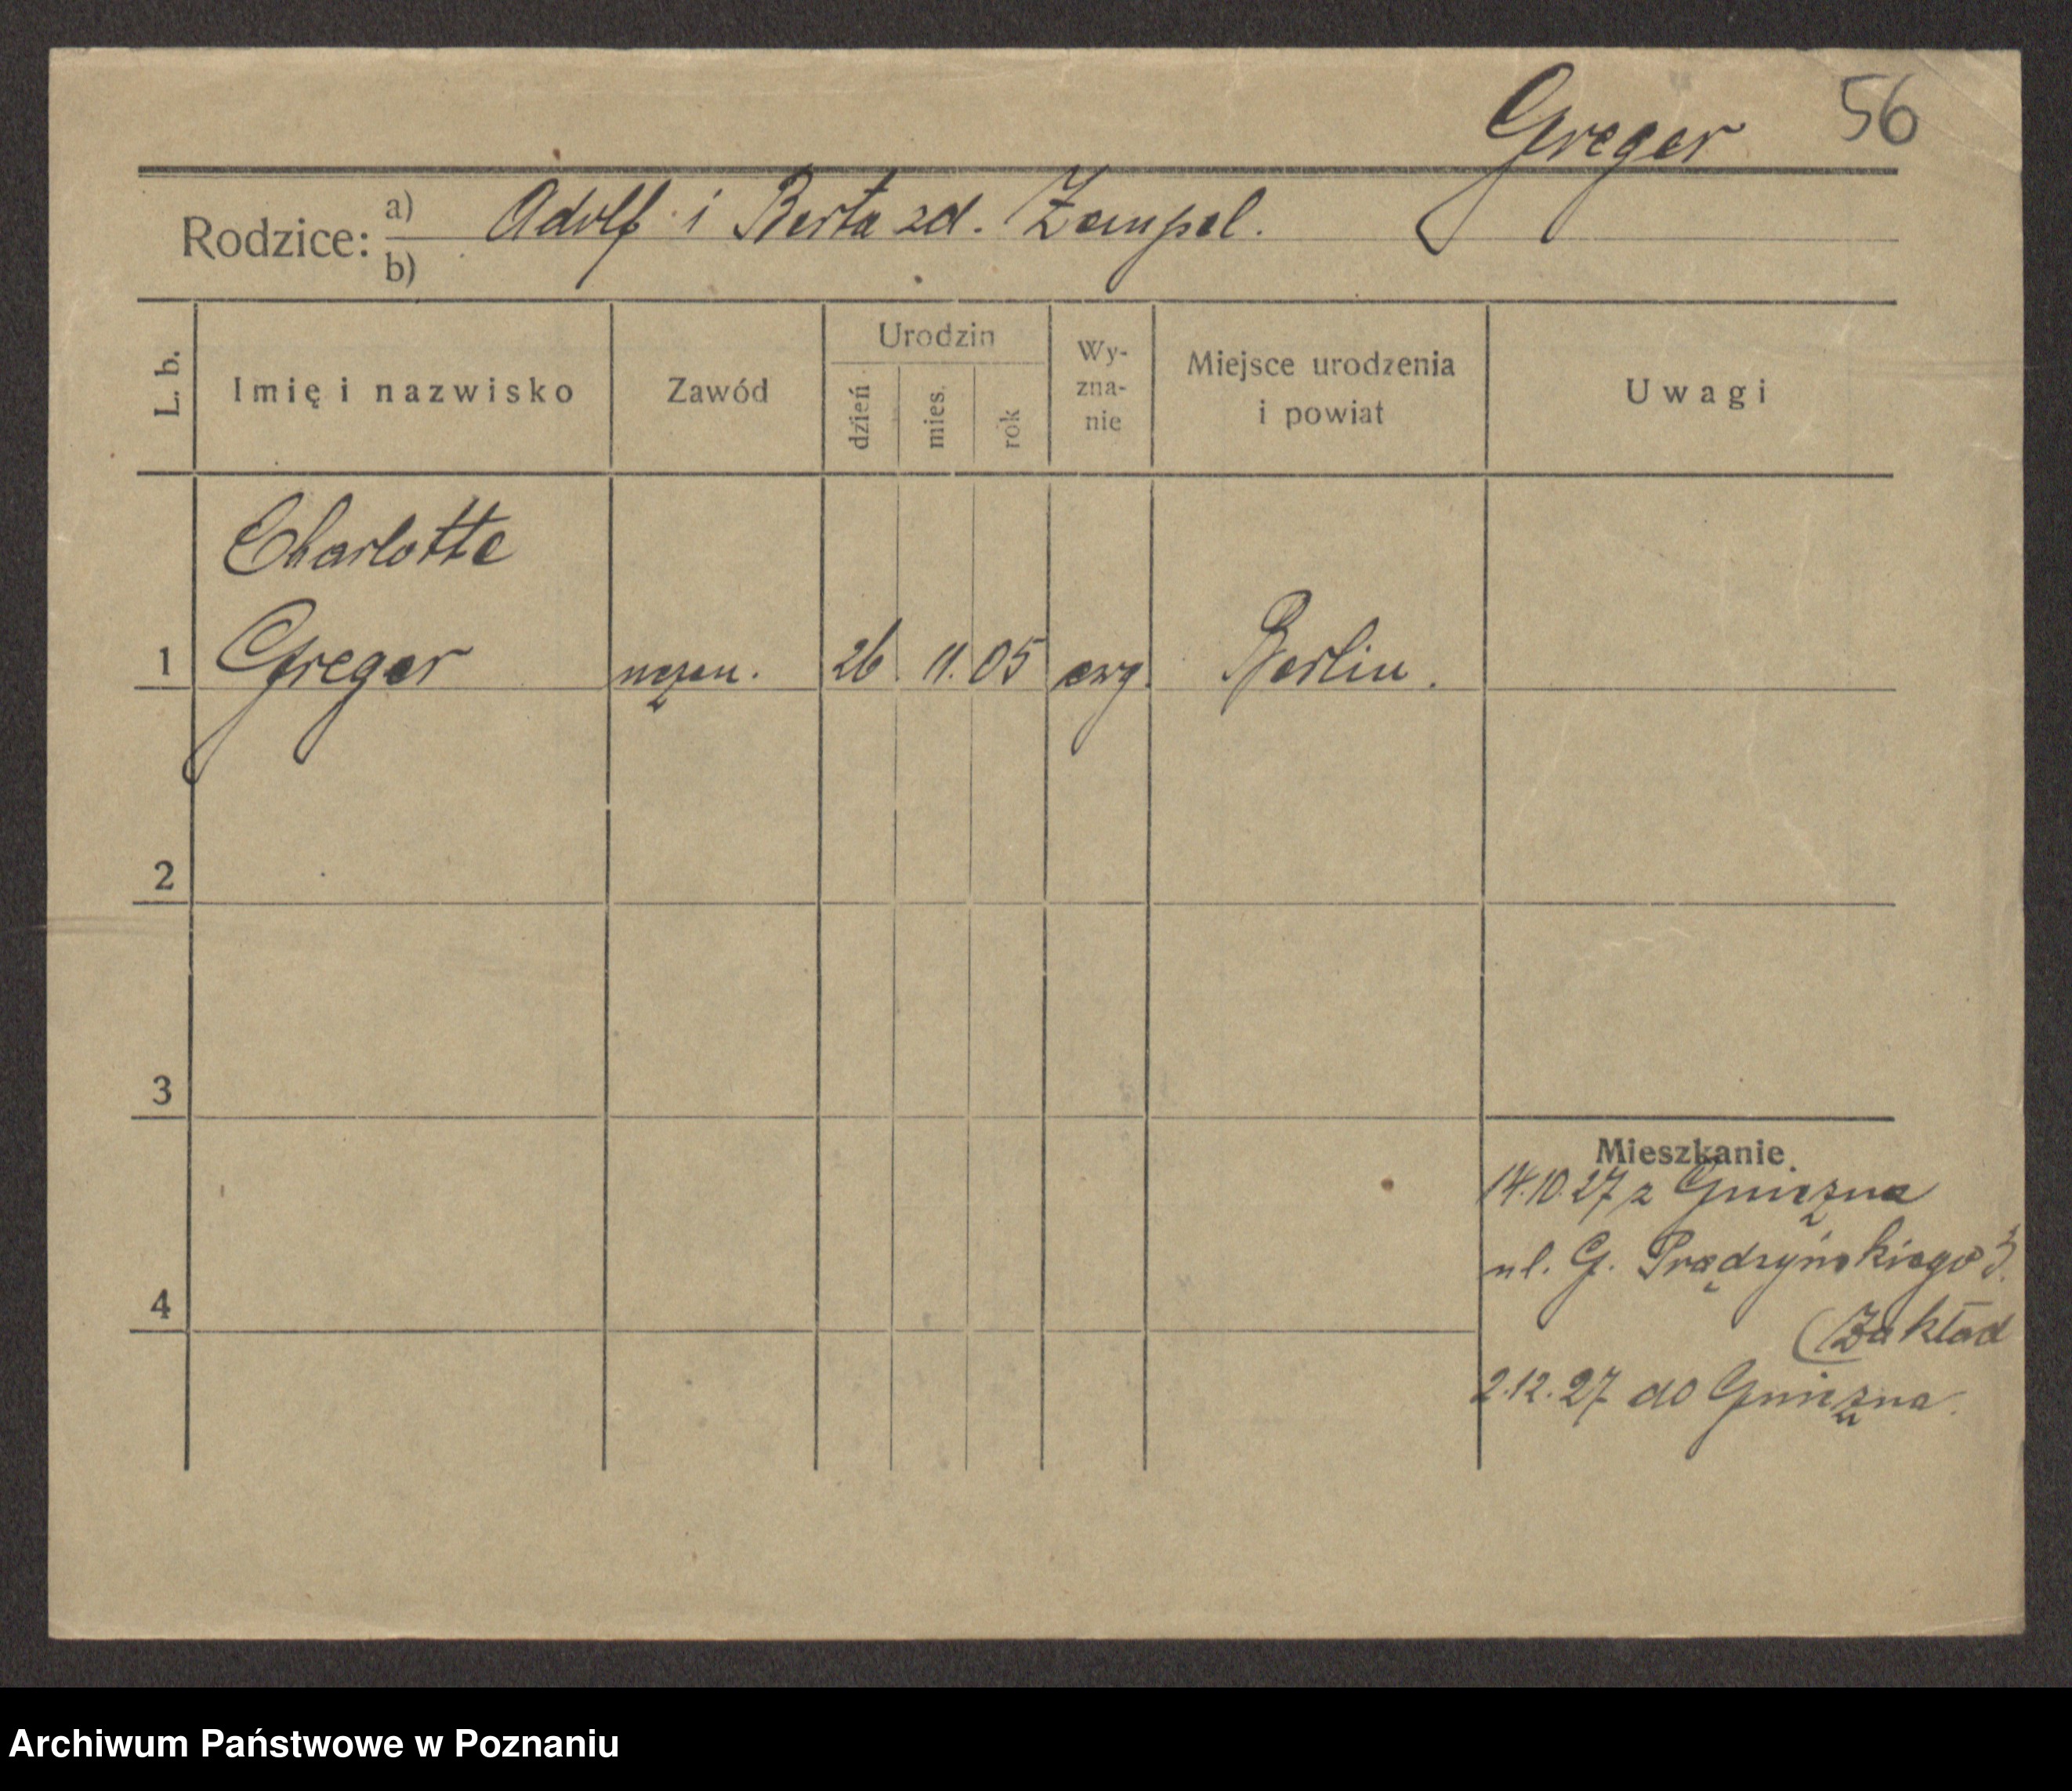 Greger 56
Rodzice: a) Adolf i Berta zd. Zempel.
b)
L. b. Imię i nazwisko Zawód Urodzin dzień mies. rok Wy-zna-nie Miejsce urodzenia i powiat Uwagi
Charlotte
1 Greger uczen. 26 11. 05 ewg. Berlin.
2
3
Mieszkanie
14.10.27 z Gniezna
ul. G. Prądzyńskiego 3.
4
(Zakład
2.12.27 do Gniezna.
Archiwum Państwowe w Poznaniu